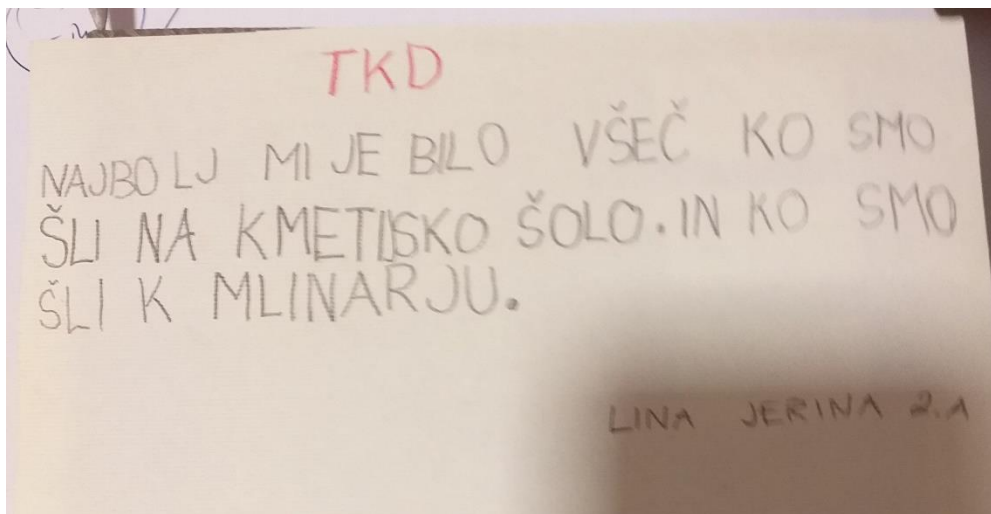 TKD
NAJBOLJ MI JE BILO VŠEČ KO SMO
ŠLI NA KMETIJSKO ŠOLO. IN KO SMO
ŠLI K MLINARJU.
LINA JERINA 2.A